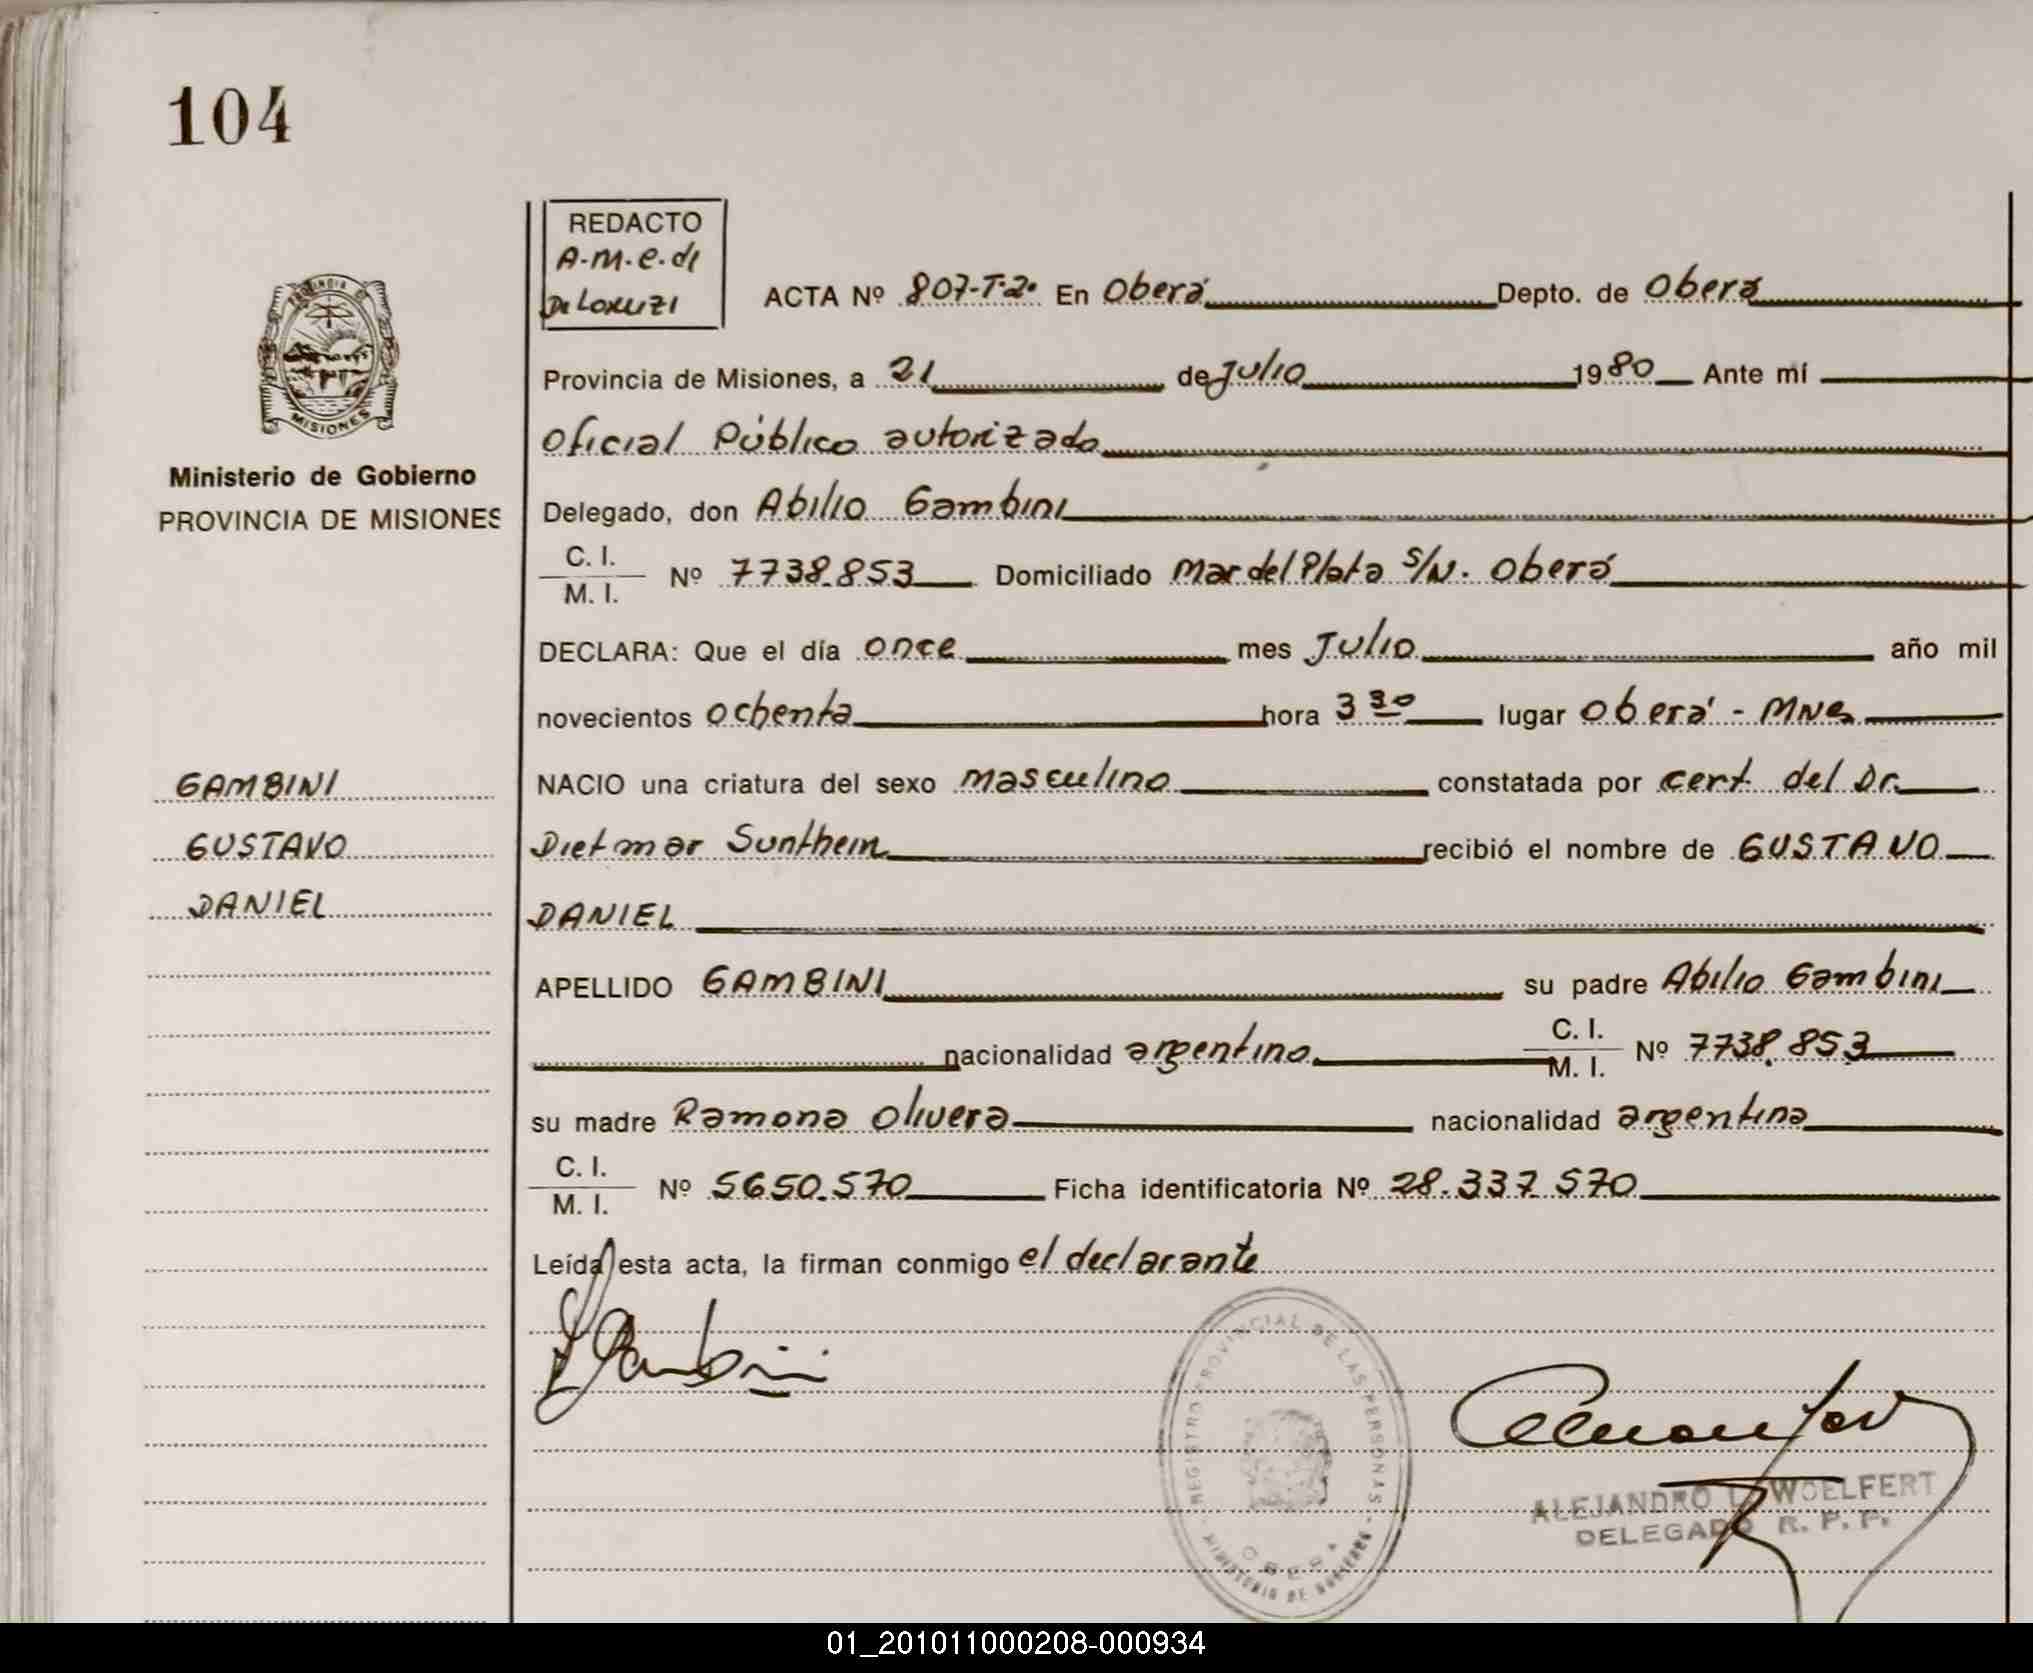 104
REDACTO
A.M.E. de
De Lorenzi
ACTA Nº 807-T-2º En Oberá Depto. de Oberá
Provincia de Misiones, a 21 de Julio 1980 Ante mí
Oficial Público autorizado
Delegado, don Abilio Gambini
C. I.
M. I. Nº 7738.853 Domiciliado Mar del Plata S/N. Oberá
DECLARA: Que el día once mes Julio año mil
novecientos ochenta hora 3 30 lugar Oberá - Mnes
NACIO una criatura del sexo masculino constatada por cert. del Dr.
Dietmar Sunthein recibió el nombre de GUSTAVO
DANIEL
APELLIDO GAMBINI su padre Abilio Gambini
nacionalidad argentino C. I.
M. I. Nº 7738.853
su madre Ramona Olivera nacionalidad argentina
C. I.
M. I. Nº 5650.570 Ficha identificatoria Nº 28.337.570
Leída esta acta, la firman conmigo el declarante
Gambini
PROVINCIA DE
MISIONES
Ministerio de Gobierno
PROVINCIA DE MISIONES
GAMBINI
GUSTAVO
DANIEL
REGISTRO PROVINCIAL DE LAS PERSONAS
OBERA
MINISTERIO DE GOBIERNO
ALEJANDRO L. WOELFERT
DELEGADO R. P. P.
01_201011000208-000934